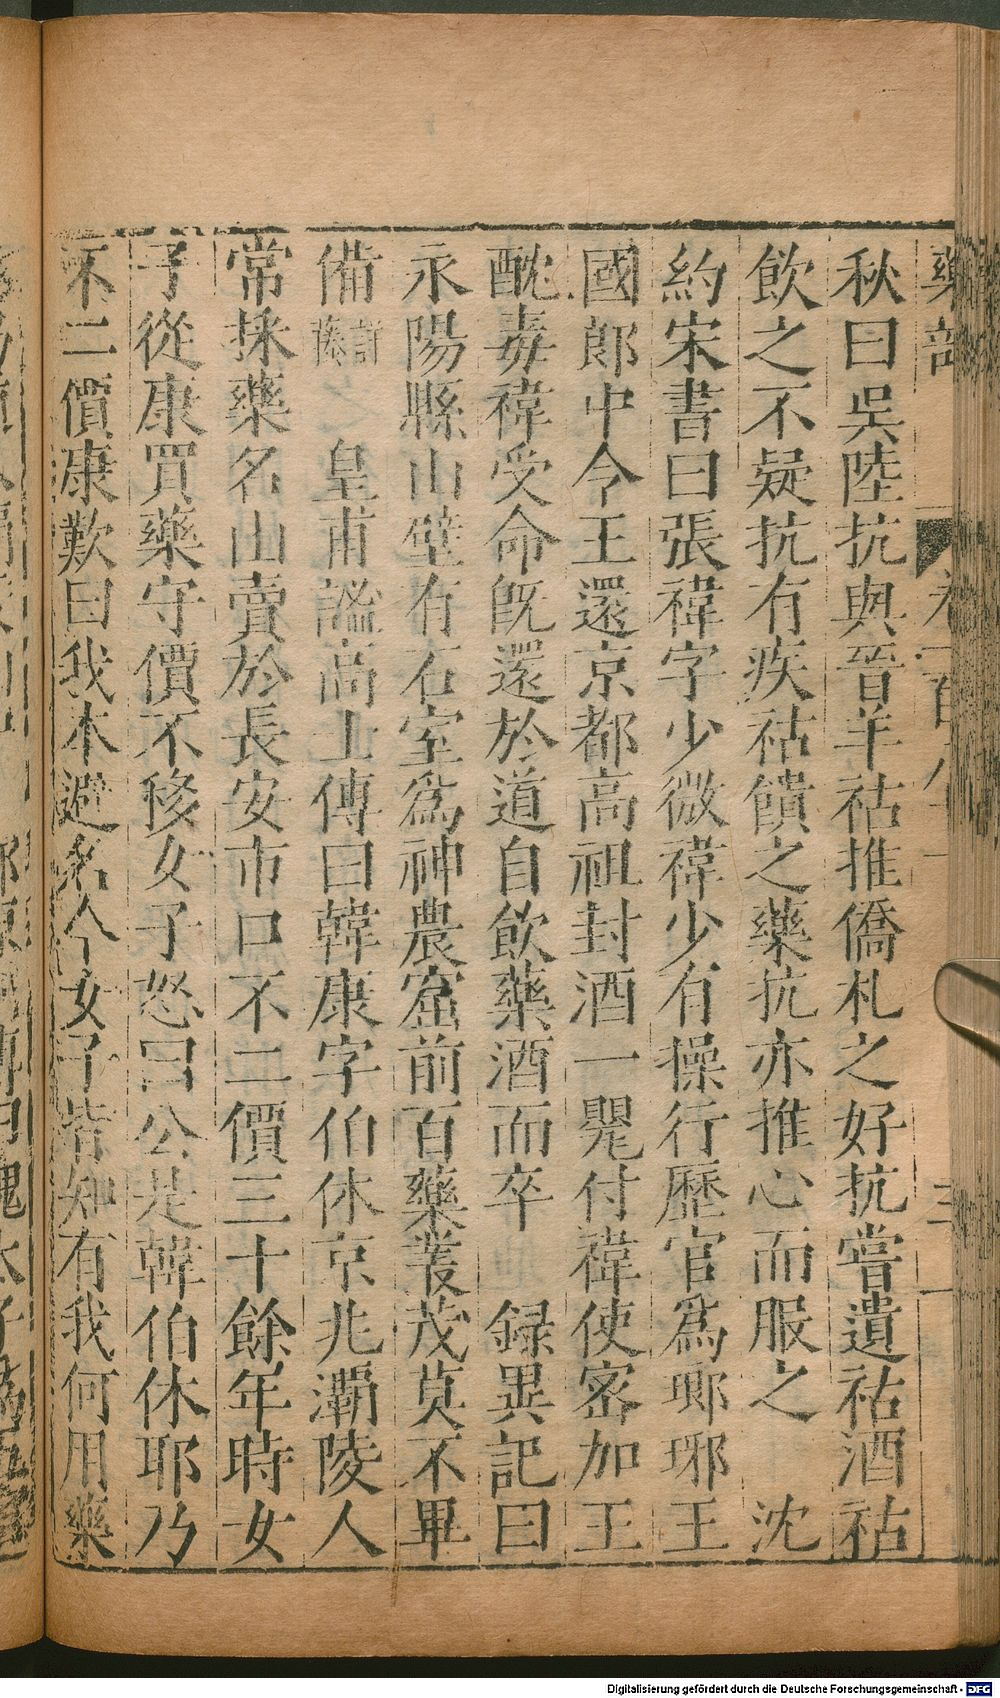 藥部
秋曰吳陸抗與晉羊祜推僑札之好抗嘗遺祜酒祜
飲之不疑抗有疾祜饋之藥抗亦推心而服之 沈
約宋書曰張禕字少微禕少有操行歷官爲瑯琊王
國郎中令王還京都高祖封酒一甖付禕使密加王
酖毒禕受命旣還於道自飲藥酒而卒 録異記曰
永陽縣山壁有石室爲神農窟前百藥叢茂莫不畢
備 皇甫謐高士傳曰韓康字伯休京兆灞陵人
常採藥名山賣於長安市口不二價三十餘年時女
子從康買藥守價不移女子怒曰公是韓伯休耶乃
不二價康歎曰我本避名今女子皆知有我何用藥
Digitalisierung gefördert durch die Deutsche Forschungsgemeinschaft - DFG